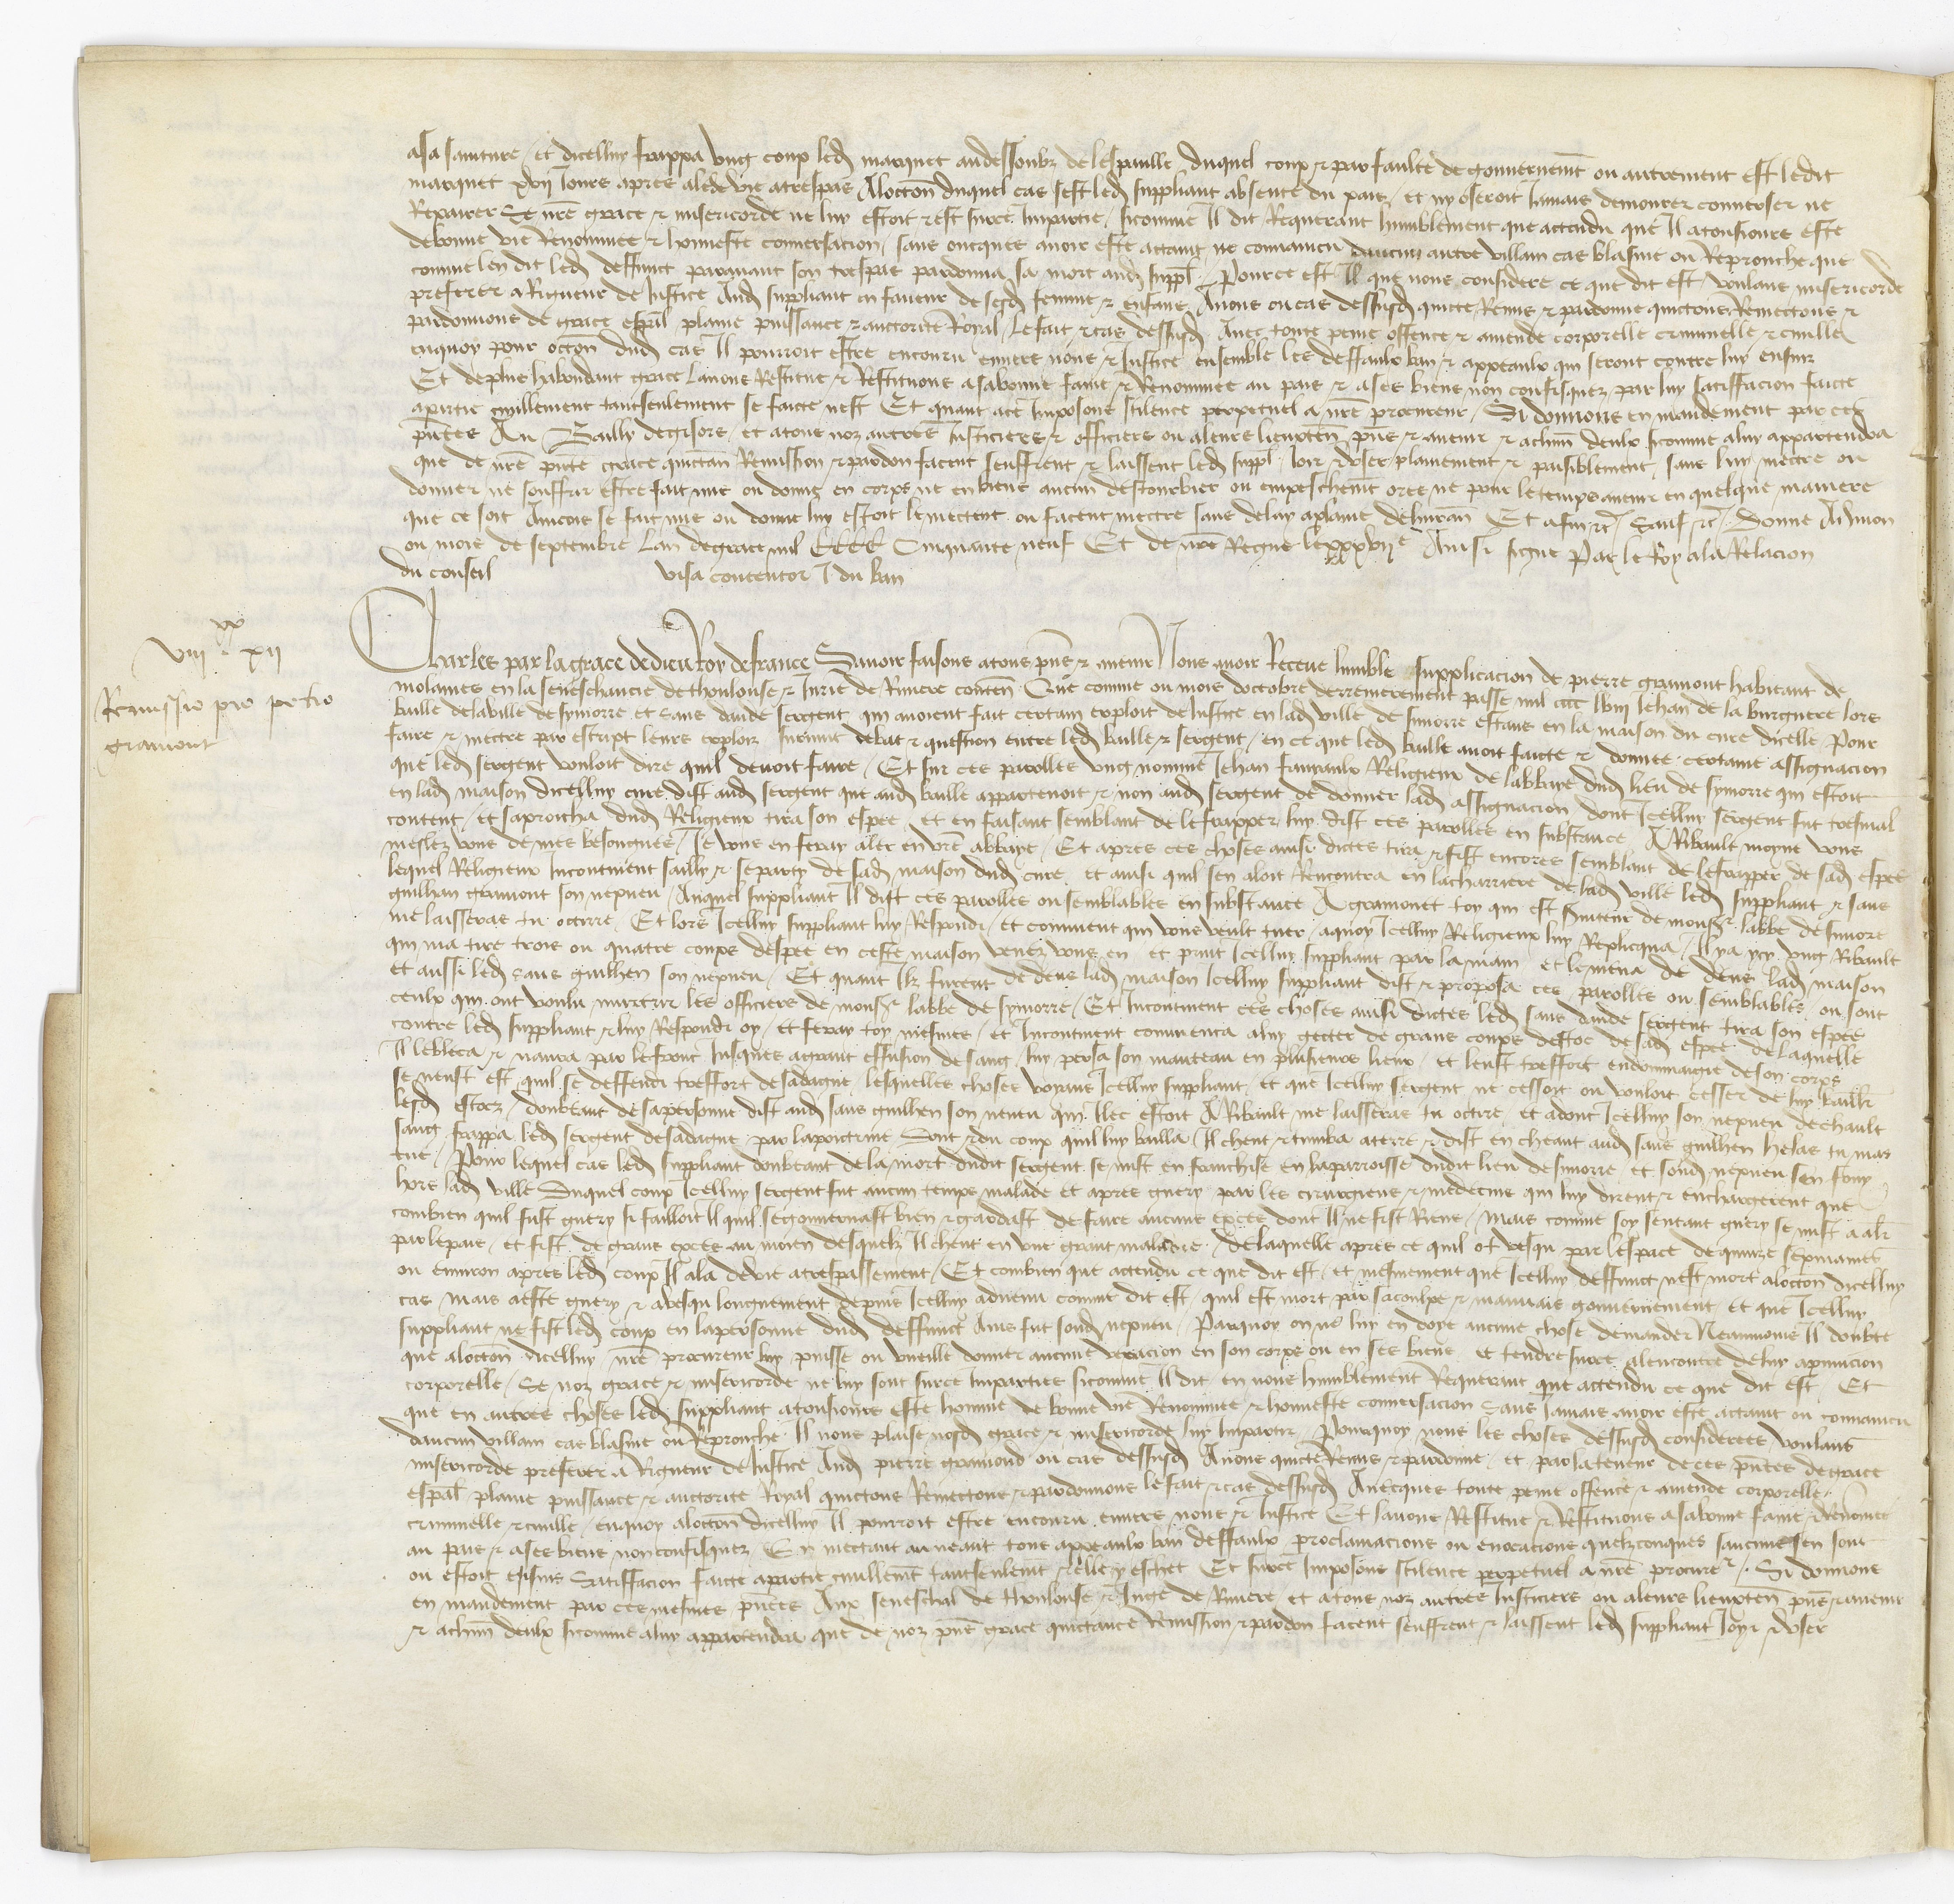 asa sainture / et dicelluy frappa ung coup led marquet audessoubz de lespaulle Duquel coup & par faulte de gouvernemt ou autrement est ledit
marquet xvij Jours apres alede vie atrespas Aloccon duquel cas sest led suppliant absente du pais / et ny oseroit Jamais demourer converser ne
Reparer Se nre grace & misericorde ne luy estoit & est surce Impartie / sicomme Il dit Requerant humblement que actendu que Il atousiours este
debonne vie Renommee & honneste conversacion / sans oncques avoir este actaint ne convaincu daucun autre villain cas blasme ou Reprouche que
comme len dit led deffunct paravant son trespas pardonna sa mort aud suppl / Pource est Il que nous considere ce que dit est / voulans misericorde
preferer a Rigueur de Justice Aud suppliant en faveur de sesd femme & enfans Avons ou cas dessusd quicte Remis & pardonne quictons Remectons &
pardonnons de grace espal plaine puissance & auctorite Royal / Le fait & cas dessusd Avec toute peine offence & amende corporelle criminelle & civille
enquoy pour occon dud cas Il pourroit estre encouru envers nous & Justice ensemble les deffaulx ban & appeaulx qui seront contre luy ensuiz
Et deplus habondant grace Lavons Restitue & Restituons asabonne fame & Renommee au pais & ases biens non confisquez par luy satisfacion faicte
apartie civillement tantseulement se faicte nest Et quant ace Imposons silence perpetuel a nre procureur / Si donnons en mandement par ces
pntes Au Bailly degisors / et atous noz autres Justiciers & officiers ou aleurs lieuxten pns & avenir & achun deulx sicomme aluy appartendra
que de nre pnte grace quictan Remission & pardon facent seuffrent & laissent led suppl Joir & user plainement & paisiblement sans luy mectre ou
donner ne souffrir estre fait mis ou donne en corps ne en biens aucun destourbier ou empeschemt ores ne pour letemps avenir en quelque maniere
que ce soit Aincois se fait mis ou donne luy estoit lemectent ou facent mectre sans delay aplaine delivran Et afin &c Sauf &c Donne A dinon
ou mois de septembre Lan degrace mil CCCC Cinquante neuf Et de nre Regne lexxxvije Ainsi signe Par le Roy ala Relacion
du conseil Visa contentor J du ban
viii xx xii
Remissio pro petro
gramont
Charles par lagrace dedieu Roy defrance Savoir faisons atous pns & avenir Nous avoir Receue lumble supplicacion de pierre gramont habitant de
molanes en la seneschaucie dethoulouse & Jurie de Riviere conten Que comme ou mois doctobre derrenierement passe mil cccc lviij Jehan de la burguere lors
baille delaville desymorre et Sans darde sergent qui avoient fait certain exploit de Justice en lad ville de simorre estans en la maison du cure dicelle / Pour
faire & mectre par escript leurs exploiz survint debat & question entre led baille & sergent / en ce que led baille avoit faicte & donnee certaine assignacion
que led sergent vouloit dire quil devoit faire / Et sur ces parolles ung nomme Jehan fauraulx Religieux de labbaye dud lieu de symorre qui estoit
en lad maison dicelluy cure dist aud sergent que aud baille appartenoit & non aud sergent de donner lad assignacion dont Icelluy sergent fut tresmal
content / et saproucha dud Religieux tira son espee et en faisant semblant de lefrapper luy dist ces parolles en substance A Ribault moyne vous
meslez vous de mes besoungnes / Je vous en feray aler en vre abbaye / Et apres ces choses ainsi dictes tira & fist encores semblant de lefrapper de sad espee
lequel Religieux Incontinent sailly & separty de sad maison dud cure et ainsi quil sen aloit Rencontra en lacharriere de lad ville led suppliant & sans
guilhan gramont son nepveu / Auquel suppliant Il dist ces parolles ou semblables en substance A gramonet toy qui est serviteur de monsr labbe desimorre
me laisseras tu occirre Et lors Icelluy suppliant luy Respondi / et comment qui vous veult tuer / aquoy Icelluy Religieux luy Replicqua / Il ya ycy ung Ribault
qui ma tire trois ou quatre coups despee en ceste maison venez vous en et print Icelluy suppliant par la main et lemena de dens lad maison
et aussi led Sans guilhen son nepveu / Et quant Ilz furent dedens lad maison Icelluy suppliant dist & proposa ces parolles ou semblables ou sont
ceulx qui ont voulu murtrir les officiers de monsr labbe de symorre / Et Incontinent ces choses ainsi dictes led sans darde sergent tira son espee
contre led suppliant & luy Respondi oy / et feray toy mesmes / et Incontinent commenca aluy gecter de grans coups destoc de sad espee delaquelle
Il lebleca & navra par lefront Jusques agrant effusion de sang / luy persa son manteau en plusieurs lieux / et leust tresfort endommaigie de son corps
se neust est quil se deffendi tresfort desadague / lesquelles choses voyans Icelluy suppliant / et que Icelluy sergent ne cessoit ou vouloit cesser de luy baillr
lesd estocz / doubtant de sapersonne dist aud sans guilhen son neveu qui Ilec estoit A Ribault me laisseras tu occire et adont Icelluy son nepveu dechault
sang frappa led sergent desadague par lapoictrine Dont & du coup quil luy bailla Il cheut & tumba aterre & dist en cheant aud sans guilhen helas tu mas
tue / Pour lequel cas led suppliant doubtant dela mort dudit sergent se mist en franchise en laparroisse dudit lieu desimorre et sond nepveu sen fouy
hors lad ville Duquel coup Icelluy sergent fut aucun temps malade et apres guery par les cirurgiens & medecins qui luy dirent & enchargerent que
combien quil fust guery si failloit Il quil segouvernast bien & gardast de faire aucuns exces dont Il ne fist Riens / Mais comme soy sentant guery se mist a alr
parlepais / et fist de grans exces au moien desquelz Il cheut en une grant maladie / Delaquelle apres ce quil ot vesqu par lespace dequinze sepmaines
ou environ apres led coup Il ala devie atrespassement / Et combien que actendu ce que dit est / et mesmement que Icelluy deffunct nest mort aloccon dicelluy
cas Mais aeste guery & a vesqu longuement depuis Icelluy advenu comme dit est / quil est mort par sacoulpe & mauvais gouvernement et que Icelluy
suppliant ne fist led coup en lapersonne dud deffunct Ains fut sond nepveu / Parquoy on ne luy en doye aucune chose demander Neanmoins Il doubte
que aloccon dicelluy nre procureur luy puisse ou vueille donner aucune vexacion en son corps ou en ses biens et tendre surce alencontre deluy apunicion
corporelle / Se noz grace & misericorde ne luy sont surce Imparties sicomme Il dit en nous humblement Requerant que actendu ce que dit est / Et
que en autres choses led suppliant atousiours este homme de bonne vie Renommee & honneste conversacion Sans Jamais avoir este actaint ou convaincu
daucun villain cas blasme ou Reprouche Il nous plaise nosd grace & misericorde luy Impartir / Pourquoy nous les choses dessusd considerees voulans
misericorde preferer a Rigueur de Justice Aud pierre gramond ou cas dessusd Avons quicte Remis & pardonne et par lateneur de ces pntes degrace
espal plaine puissance & auctorite Royal quictons Remectons & pardonnons lefait & cas dessusd Avecques toute peine offence & amende corporelle
criminelle & civille / enquoy aloccon dicelluy Il pourroit estre encouru envers nous & Justice Et lavons Restitue & Restituons asabonne fame & Renomee
au pais & ases biens nonconfisquez En mectant au neant tous appeaulx ban deffaulx proclamacions ou evocacions quelzconques saucunes en sont
ou estoit ensuis Satisfacion faicte apartie civillemt tantseulemt selle y eschet Et surce Imposons silence perpetuel a nre procurer / Si donnons
en mandement par ces mesmes pntes Aux seneschal de thoulouse & Juge de Riviere et atous noz autres Justiciers ou aleurs lieuxten pns & avenir
& achun deulx sicomme aluy appartendra que de noz pns grace quictance Remission & pardon facent seuffrent & laissent led suppliant Joyr & user